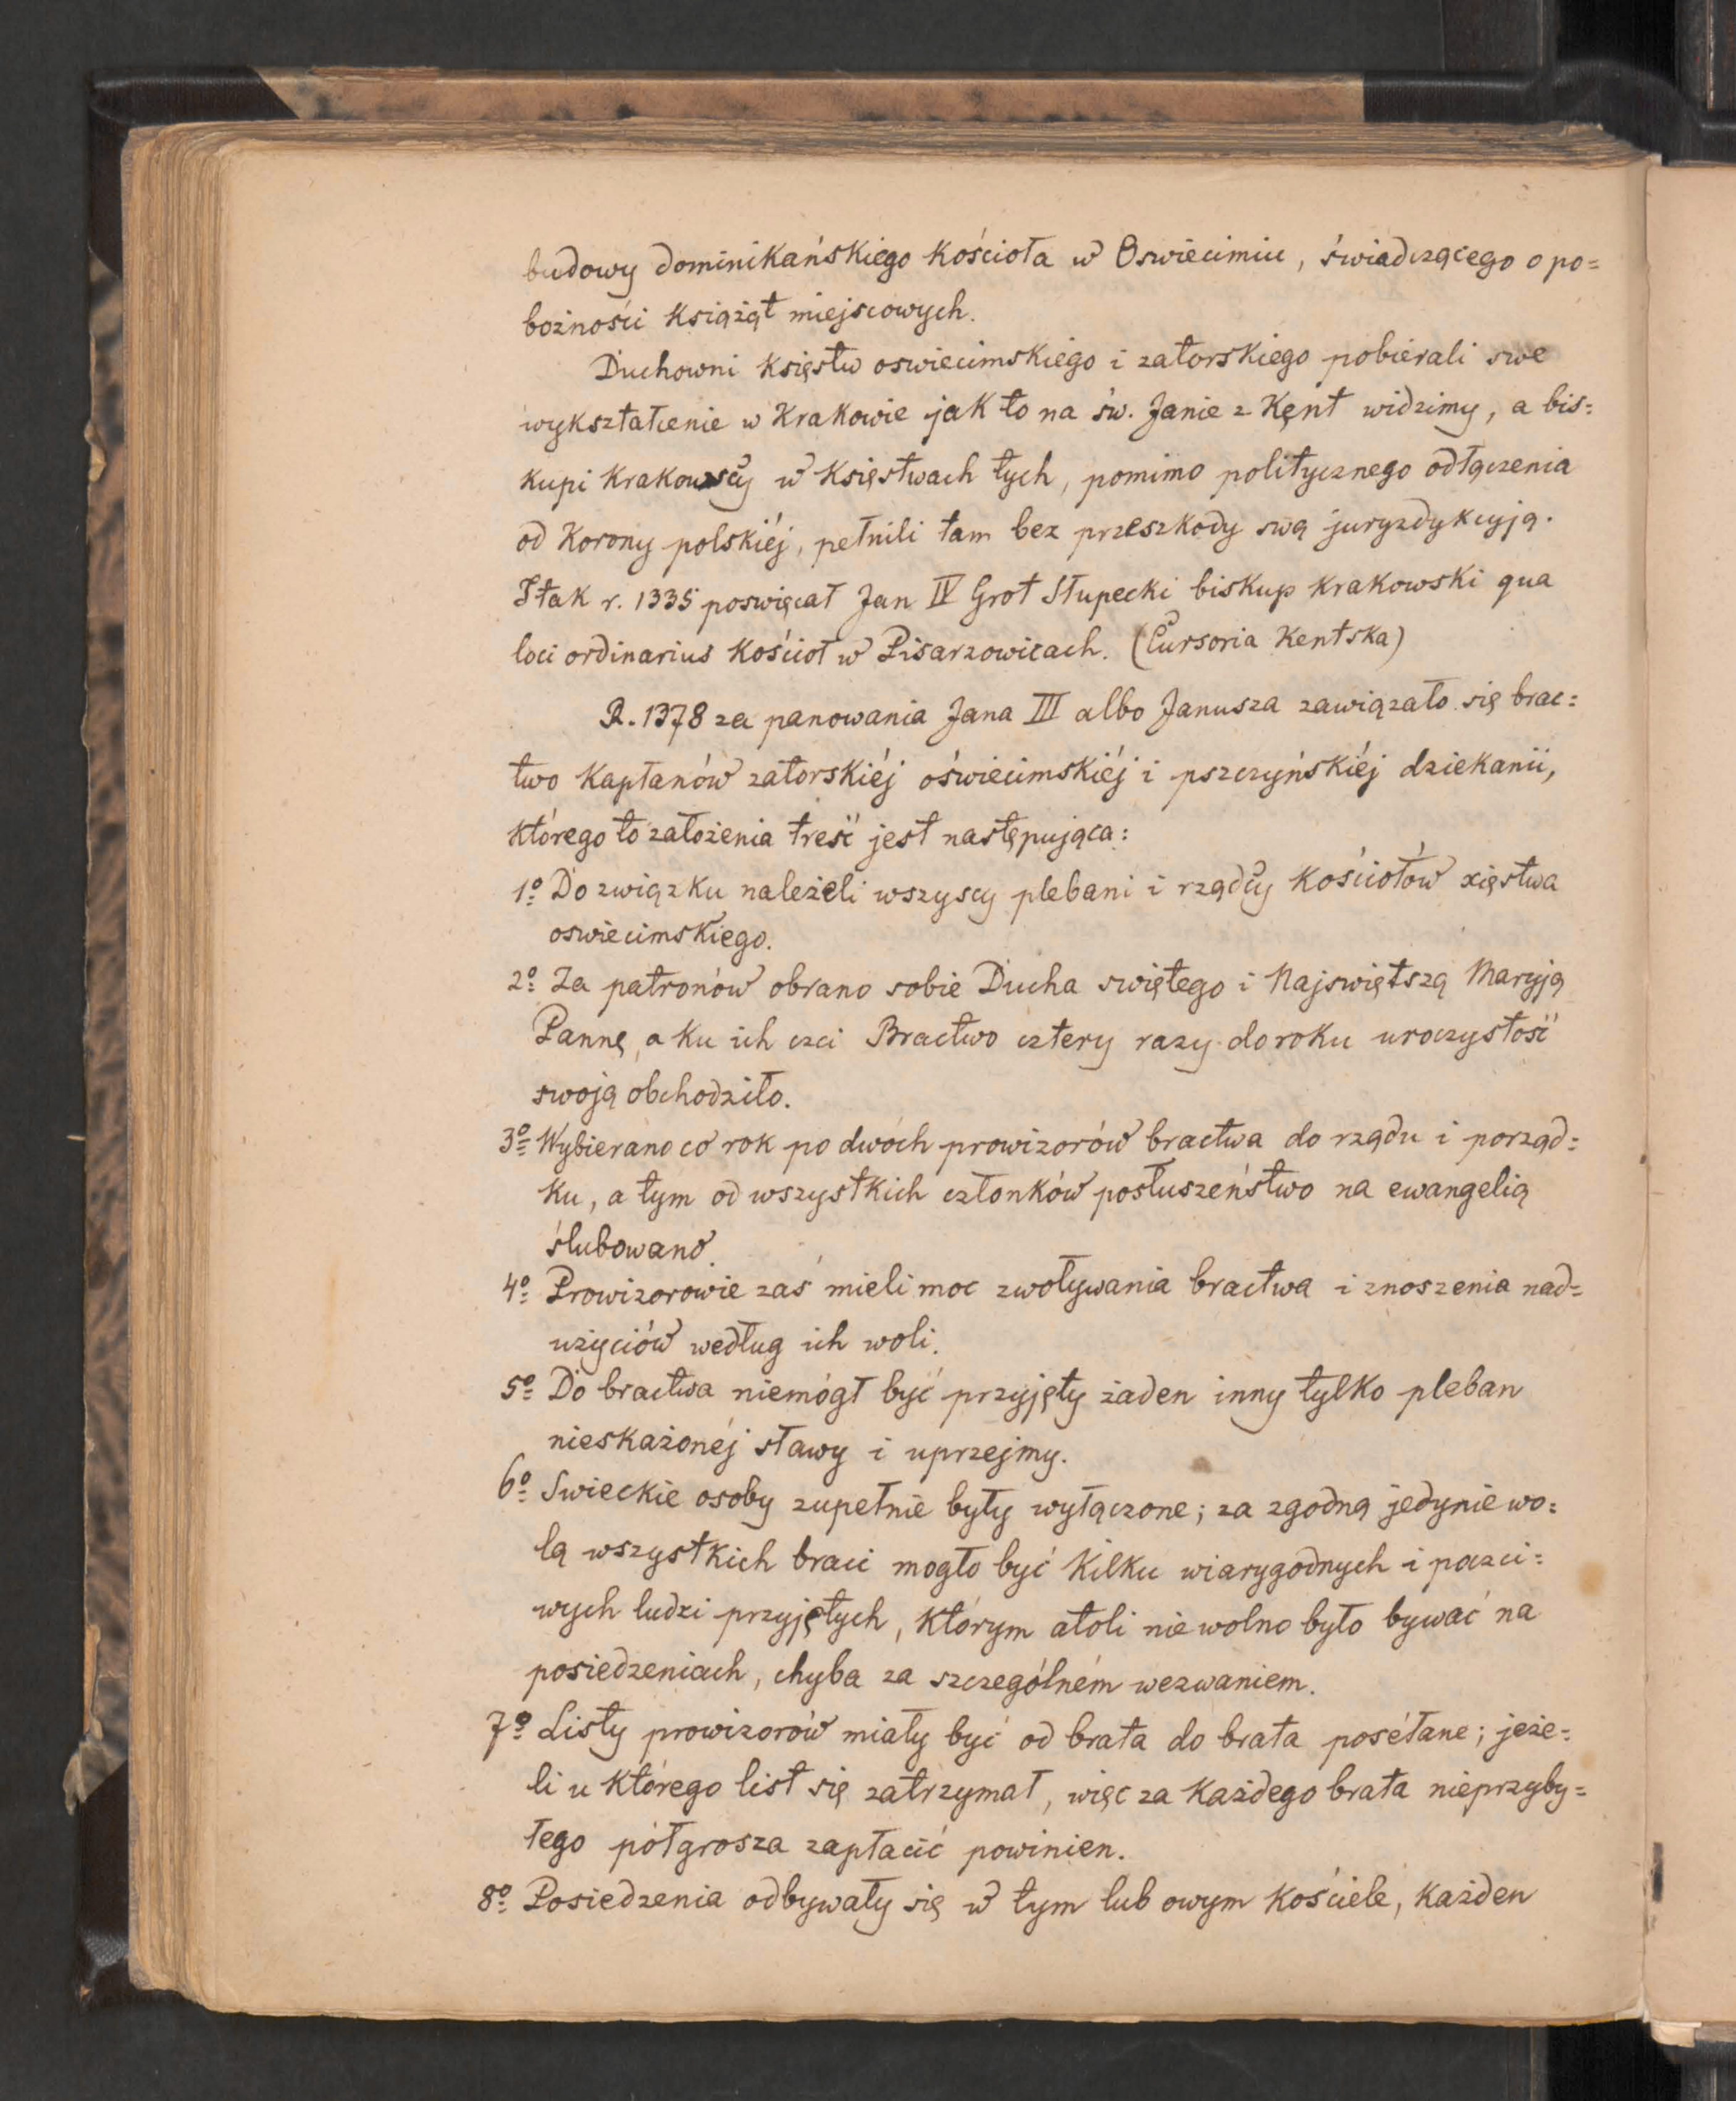 budowy dominikańskiego kościoła w Oswiecimiu, świadczącego o po=
bożności książąt miejscowych.
Duchowni księstw oswiecimskiego i zatorskiego pobiérali swe
wykształcenie w Krakowie jak to na św. Janie z Kęnt widzimy, a bis=
kupi krakowscy w księstwach tych, pomimo politycznego odłączenia
od Korony polskiéj, pełnili tam bez przeszkody swą juryzdykcyją.
I tak r. 1335 poswięcał Jan IV Grot Słupecki biskup krakowski qua
loci ordinarius kościoł w Pisarzowicach. (Cursoria Kentska)
R. 1378 za panowania Jana III albo Janusza zawiązało się brac=
two kapłanów zatorskiéj oświecimskiéj i pszczyńskiéj dziekanii,
którego to założenia treść jest następująca:
1º Do związku należeli wszyscy plebani i rządcy kościołów xięstwa
oswiecimskiego.
2º Za patronów obrano sobie Ducha swiętego i Najswiętszą Maryją
Pannę, a ku ich czci Bractwo cztery razy do roku uroczystość
swoją obchodziło.
3º Wybierano co rok po dwóch prowizorów bractwa do rządu i porząd=
ku, a tym od wszystkich członków posłuszeństwo na ewangelią
ślubowano.
4º Prowizorowie zaś mieli moc zwoływania bractwa i znoszenia nad=
użyciów według ich woli.
5º Do bractwa niemógł być przyjęty żaden inny tylko pleban
nieskażonéj sławy i uprzejmy.
6º Swieckie osoby zupełnie były wyłączone; za zgodną jedynie wo=
lą wszystkich braci mogło być kilku wiarygodnych i poczci=
wych ludzi przyjętych, którym atoli nie wolno było bywać na
posiedzeniach, chyba za szczególném wezwaniem.
7º Listy prowizorów miały być od brata do brata posełane; jeże=
li u którego list się zatrzymał, więc za każdego brata nieprzyby=
łego półgrosza zapłacić powinien.
8º Posiedzenia odbywały się w tym lub owym kościele, każden